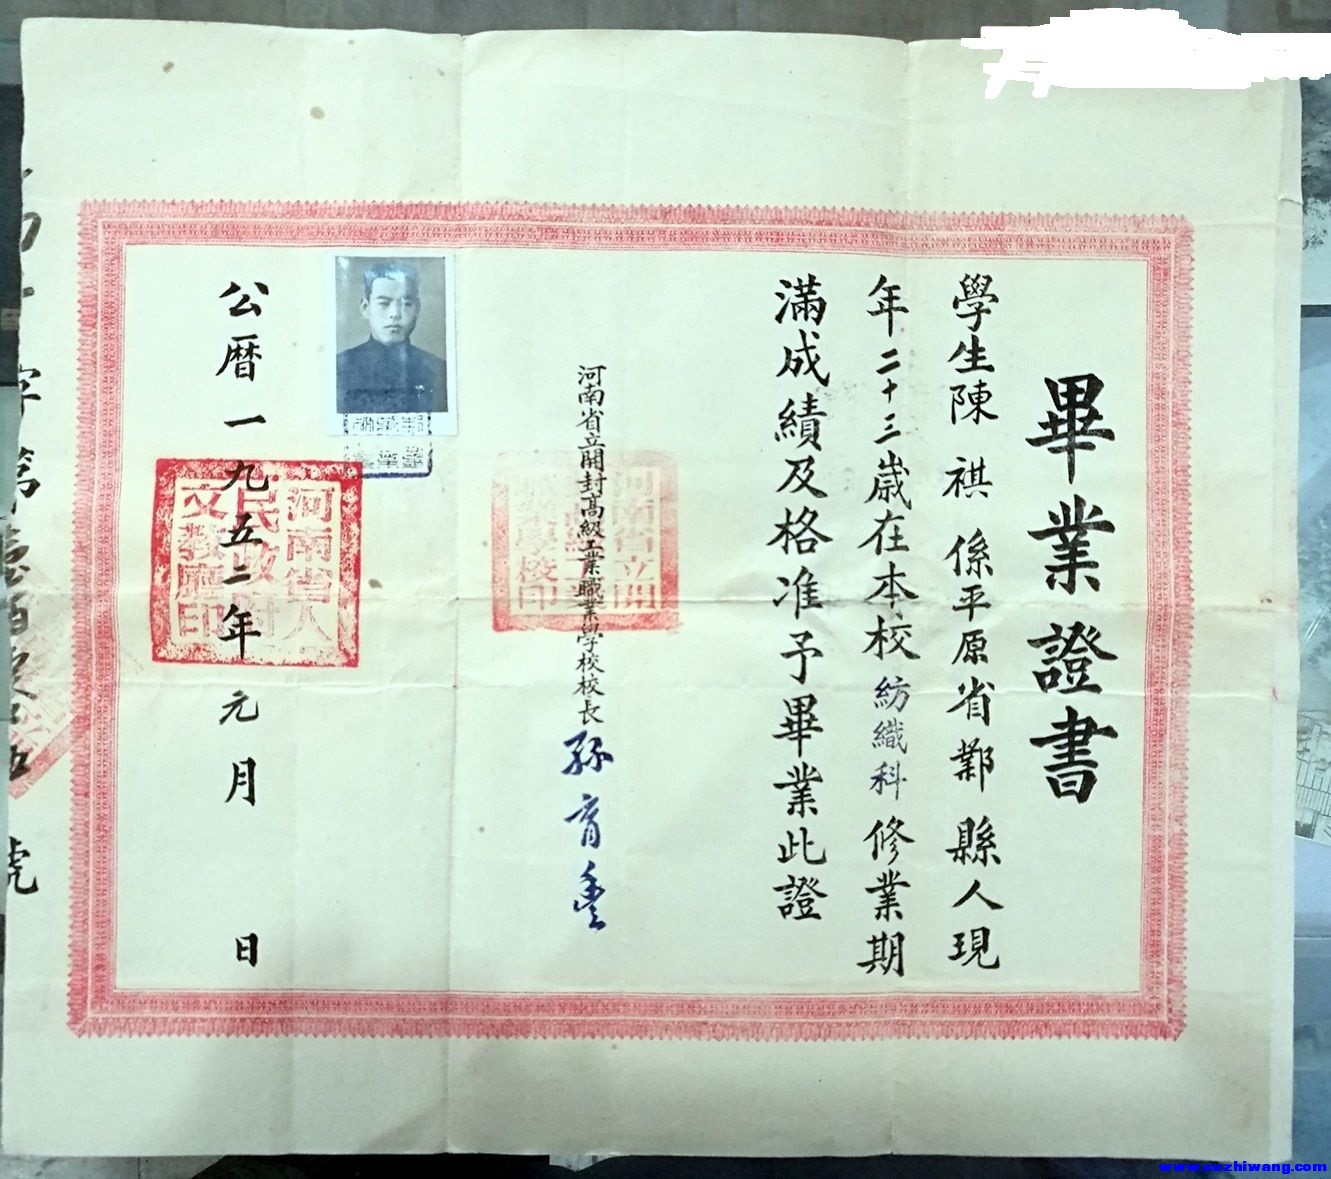 畢業證書
學生陳祺係平原省鄴縣人現
年二十三歲在本校紡織科修業期
滿成績及格准予畢業此證
河南省立開封高級工業職業學校校長孫育豊
公曆一九五二年元月 日
河南省人
民政府
文教廳印
字第壹百
號
www.cuzhiwang.com